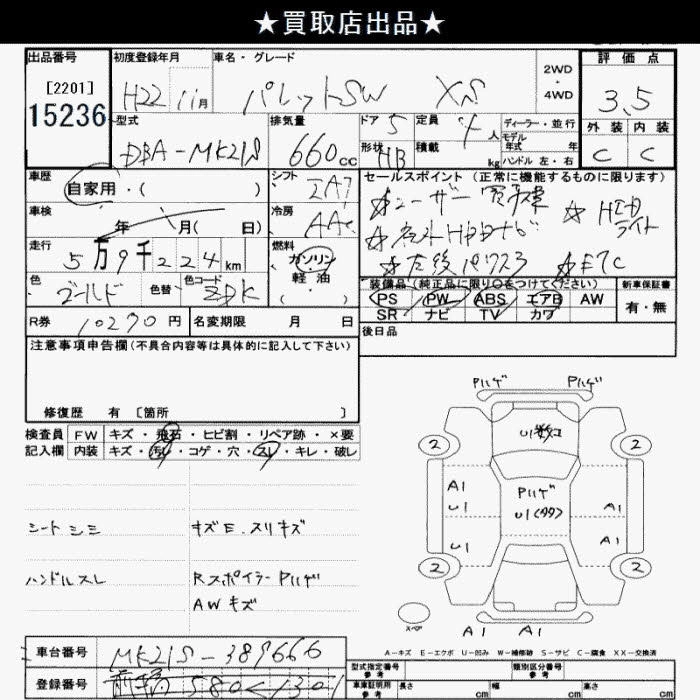 ★買取店出品★
出品番号 初度登録年月 車名・グレード 2WD・4WD 評価点
[2201] 15236 H22 11月 パレットSW XS 3.5
型式 排気量 ドア 5 定員 4人 ディーラー・並行 外装 内装
DBA-MK21S 660cc 形状 HB 積載 kg モデル年式 年 ハンドル左・右 C C
車歴 シフト IA7 セールスポイント(正常に機能するものに限ります)
自家用・( ) ☆ユーザー買取車 ☆HIDライト
車検 年 月( 日) 冷房 AAC ☆社外HDDナビ
走行 5万9千224km 燃料 ガソリン 軽油 ( ) ☆左後パワスラ ☆ETC
色 ゴールド 色替 色コード 装備品(純正品に限り○をつけてください) 新車保証書
PS PW ABS エアB AW 有・無
SR ナビ TV カワ
R券 10270円 名変期限 月 日 後日品
注意事項申告欄(不具合内容等は具体的に記入して下さい)
修復歴 有 [箇所 ]
検査員 FW キズ・飛石・ヒビ割・リペア跡・×要
記入欄 内装 キズ・汚レ・コゲ・穴・スレ・キレ・破レ
Pハゲ Pハゲ
U1数コ
2 2
A1 Pハゲ
U1 U1(タタ) A1
U1 A1
2 2
シートシミ キズE.スリキズ
ハンドルスレ RスポイラーPハゲ
AWキズ
スペア A1 A1
A-キズ E-エクボ U-凹み W-補修跡 S-サビ C-腐食 XX-交換済
車台番号 MK21S-389666
型式指定番号 参考 類別区分番号 参考
登録番号 580 1301
車庫証明用 参考 長さ cm 幅 cm 高さ cm